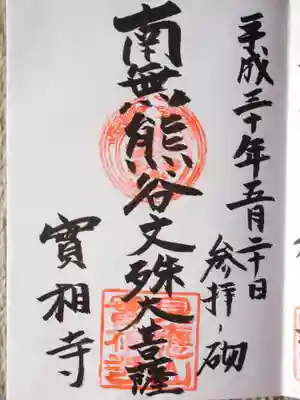 平成三十年五月二十日
参拝し砌
南無熊谷文殊大菩薩
實相寺